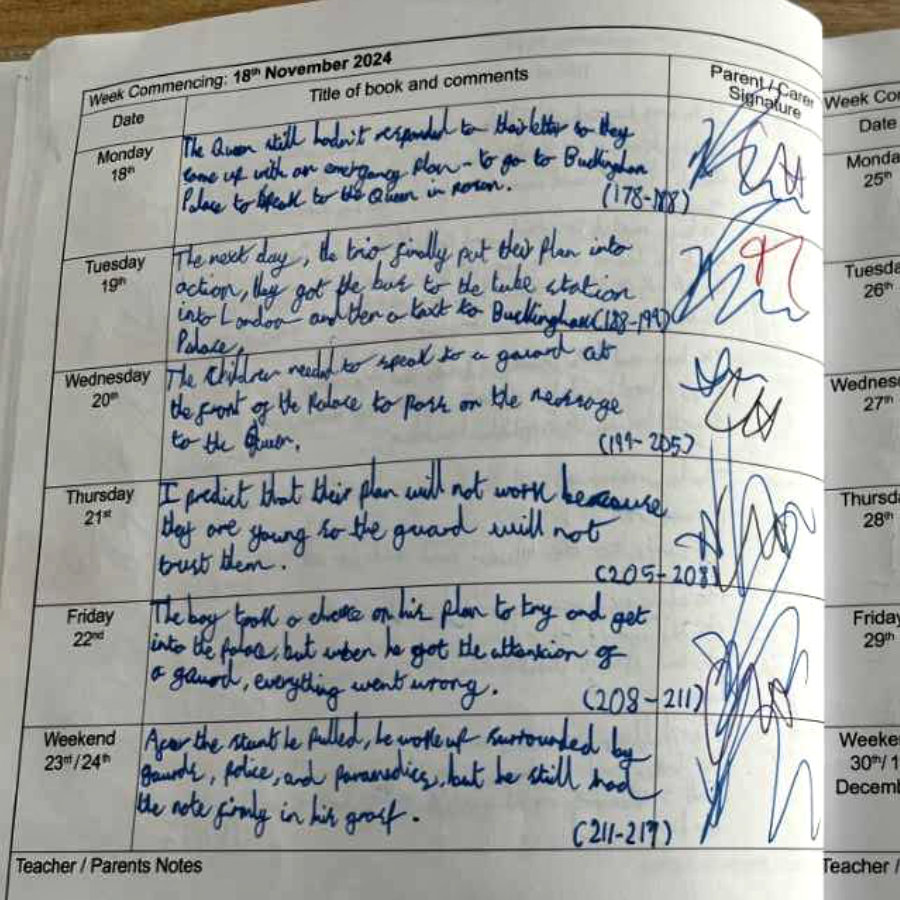 Week Commencing: 18th November 2024
Date
Title of book and comments
Parent / Carer
Signature
Monday
18th
The Queen still hadn't responded to their letter so they
came up with an emergency plan - to go to Buckingham
Palace to speak to the Queen in person.
(178-188)
Tuesday
19th
The next day, the trio finally put their plan into
action, they got the bus to the tube station
into London and then a taxi to Buckingham (188-199)
Palace.
Wednesday
20th
The children needed to speak to a gaurd at
the front of the Palace to pass on the message
to the Queen.
(199-205)
Thursday
21st
I predict that their plan will not work because
they are young so the guard will not
trust them.
(205-208)
Friday
22nd
The boy took a chance on his plan to try and get
into the palace, but when he got the attention of
a gaurd, everything went wrong.
(208-211)
Weekend
23rd/24th
After the stunt he pulled, he woke up surrounded by
gaurds, police, and paramedics, but he still had
the note firmly in his grasp.
(211-217)
Teacher / Parents Notes
Week Co
Date
Monda
25th
Tuesda
26th
Wednes
27th
Thursd
28th
Friday
29th
Weeke
30th/ 1
Decemb
Teacher /